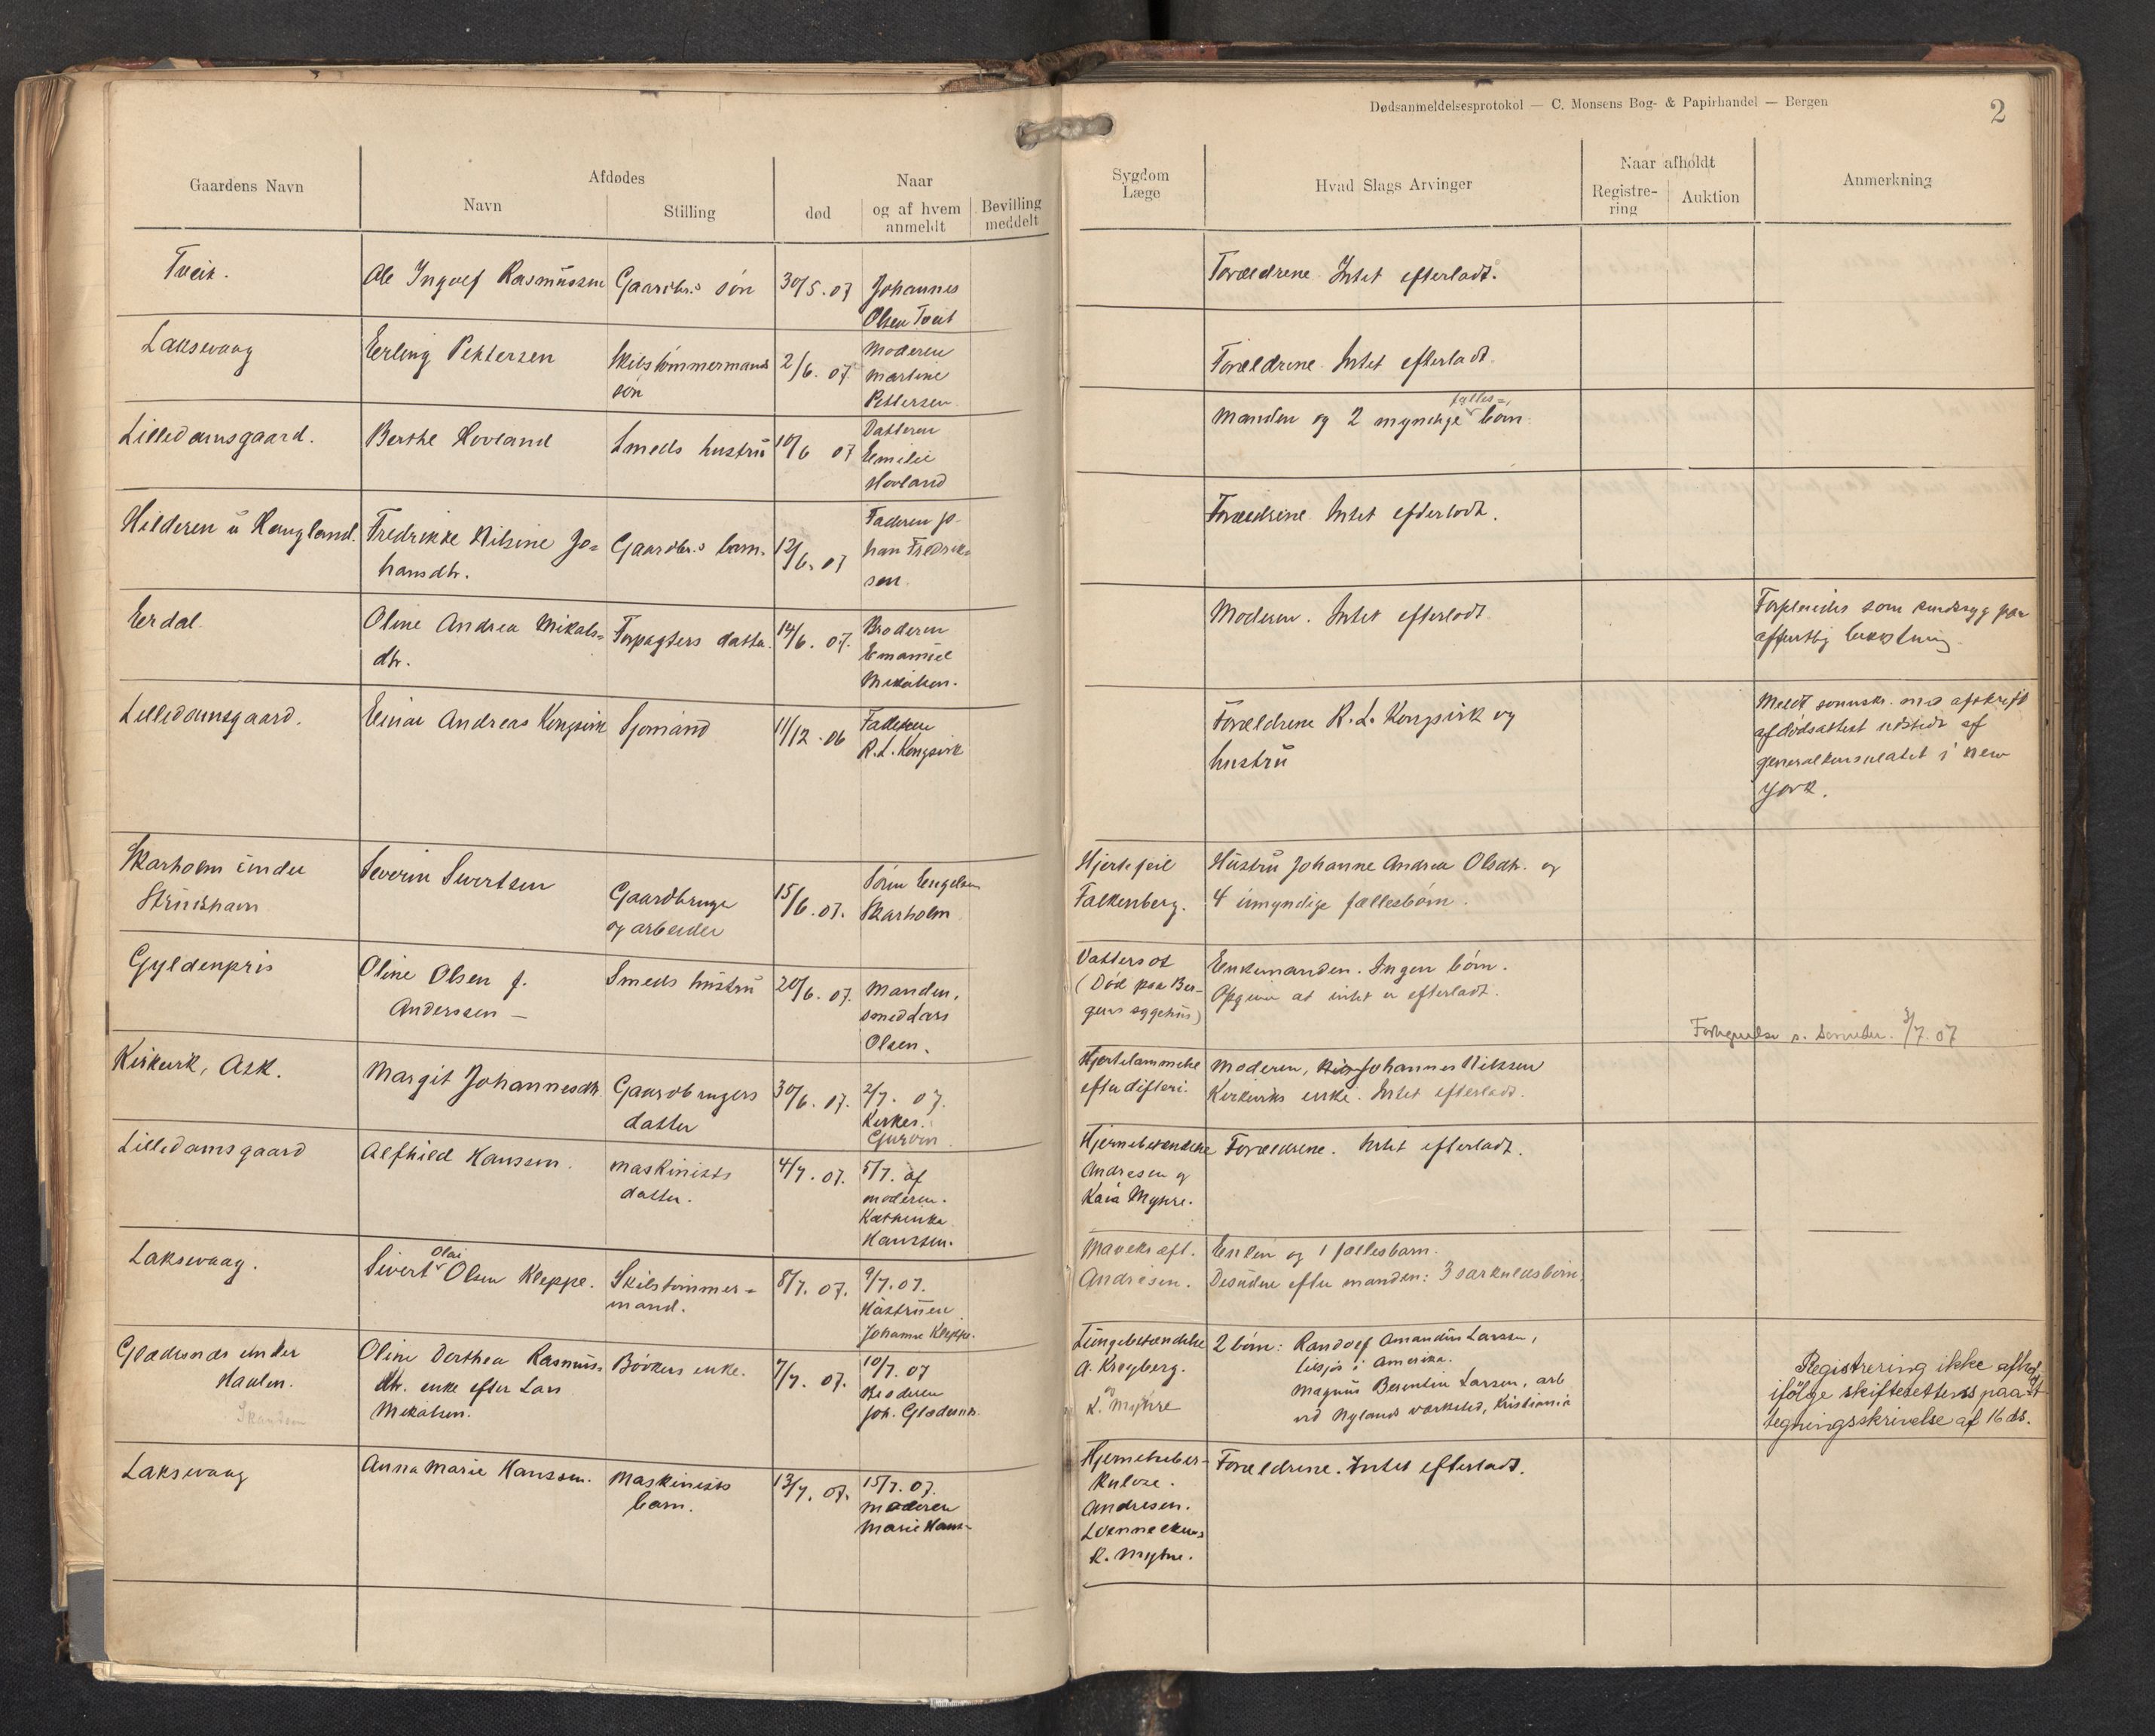 Dødsanmeldelsesprotokol — C. Monsens Bog- & Papirhandel — Bergen
2
Gaardens Navn
Afdødes
Navn
Stilling
død
Naar
og af hvem
anmeldt
Bevilling
meddelt
Sygdom
Læge
Hvad Slags Arvinger
Naar afholdt
Registre-
ring
Auktion
Anmerkning
Tveit.
Ole Ingolf Rasmussen
Gaardbr.s søn
30/5. 07
Johannes
Olsen Tveit
Forældrene. Intet efterladt.
Laksevaag
Erling Pettersen
Skibstømmermands
søn
2/6. 07.
Moderen
Martine
Pettersen.
Forældrene. Intet efterladt.
Lilledamsgaard.
Berthe Hovland
Smeds hustru
10/6 07
Datteren
Emilie
Hovland
fælles=
Manden og 2 myndige børn.
Hilderen u Haugland.
Fredrikke Nilsine Jo=
hansdtr.
Gaardbr.s barn.
12/6. 07
Faderen Jo-
han Fredrik-
sen.
Forældrene. Intet efterladt.
Erdal.
Oline Andrea Mikals=
dtr.
Forpagters datter.
14/6. 07.
Broderen
Emanuel
Mikalsen.
Moderen. Intet efterladt.
Forpleiedes som sindssyg paa
offentlig bekostning.
Lilledamsgaard.
Einar Andreas Kongsvik
Sjømand
11/12. 06
Faderen
R. L. Kongsvik
Forældrene R. L. Kongsvik og
hustru
Meldt med afskrift
af dødsattest utstedt af
generalkonsulatet i New
York.
Skarholm under
Strusshavn
Severin Sivertsen
Gaardbruger
og arbeider
15/6. 07.
Søren Engelsen
Skarholm.
Hjertefeil
Falkenberg.
Hustru Johanne Andrea Olsdtr. og
4 umyndige fællesbørn.
Gyldenpris
Oline Olsen f.
Anderssen —
Smeds hustru
20/6. 07.
Manden,
smed Lars
Olsen.
Vattersot
(Død paa Ber-
gens sygehus)
Enkemanden. Ingen børn.
Opgiver at intet er efterladt.
3/7. 07
Kirkevik, Ask.
Margit Johannesdtr.
Gaardbrugers
datter
30/6. 07.
2/7. 07.
Kirkes.
Gjervin.
Hjertelammelse
efter difteri.
Moderen, Johannes Nilssen
Kirkeviks enke. Intet efterladt.
Lilledamsgaard
Alfhild Hanssen.
Maskinists
datter.
4/7. 07.
5/7. af
moderen.
Kathinka
Hanssen.
Hjernebetændelse
Andresen og
Kaia Myhre.
Forældrene. Intet efterladt.
Laksevaag.
Olai
Sivert Olsen Kleppe.
Skibstømmer=
mand.
8/7. 07.
9/7. 07.
Hustruen
Johanne Kleppe.
Mavekræft.
Andresen.
Enken og 1 fællesbarn.
Desuden efter manden: 3 særkuldsbørn.
Gladesnæs under
Haulen.
Oline Dorthea Rasmus=
dtr. enke efter Lars
Mikalsen.
Bødkers enke.
7/7. 07.
10/7. 07
Broderen
Joh. Gladesnæs.
Lungebetændelse
A. Kreyberg.
K. Myhre
2 børn: Randolf Amandus Larssen,
tilsjøs i Amerika.
Magnus Berentin Larssen, arb.
ved Nylands værksted, Kristiania
Registrering ikke afholdt
ifølge skifterettens paa-
tegningsskrivelse af 16 ds.
Laksevaag
Anna Marie Hanssen.
Maskinists
barn.
13/7. 07.
15/7. 07.
Moderen
Marie Hans-
Hjernetuber-
kulose.
Andresen.
K. Myhre.
Forældrene. Intet efterladt.